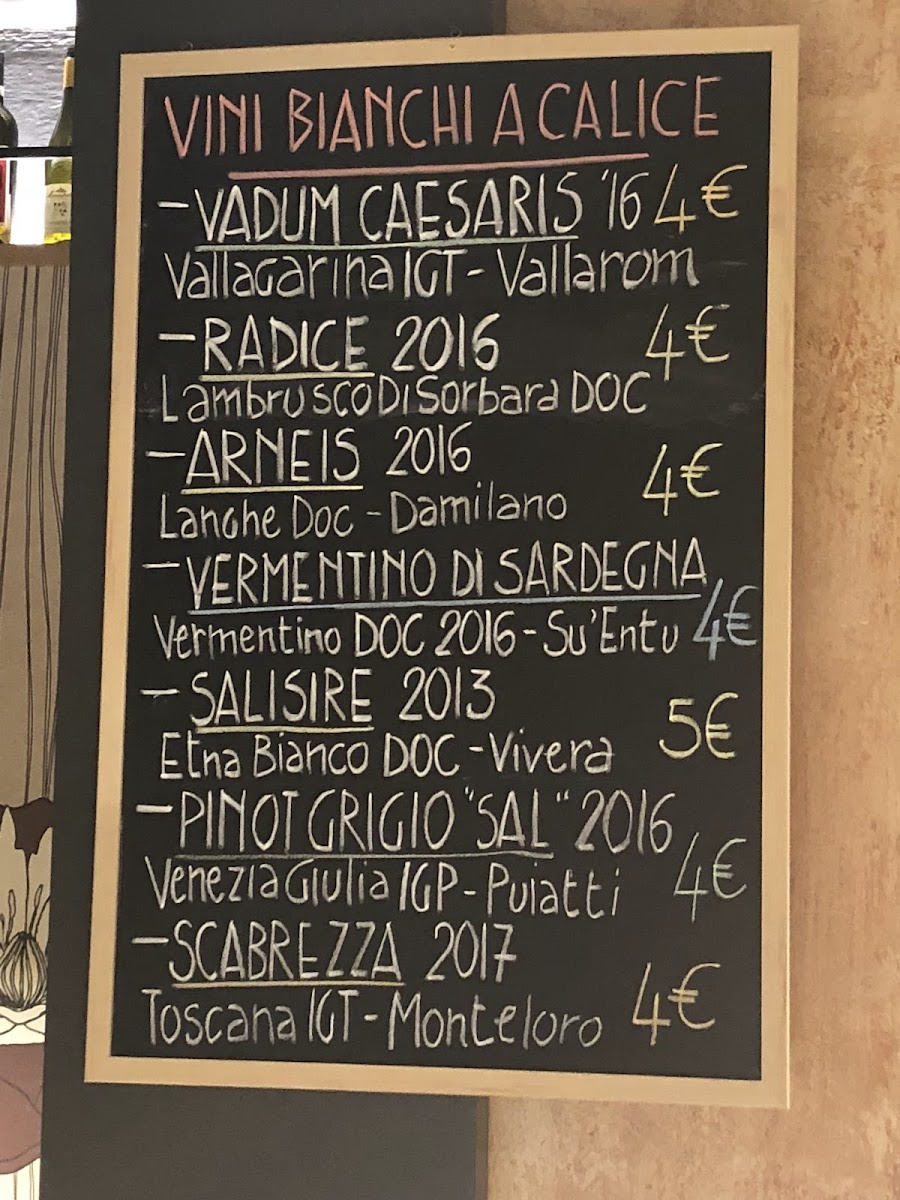 VINI BIANCHI A CALICE
- VADUM CAESARIS '16 4€
Vallagarina IGT - Vallarom
- RADICE 2016 4€
Lambrusco Di Sorbara DOC
- ARNEIS 2016 4€
Langhe Doc - Damilano
- VERMENTINO DI SARDEGNA
Vermentino DOC 2016 - Su'Entu 4€
- SALISIRE 2013 5€
Etna Bianco DOC - Vivera
- PINOT GRIGIO "SAL" 2016
Venezia Giulia IGP - Puiatti 4€
- SCABREZZA 2017
Toscana IGT - Monteloro 4€